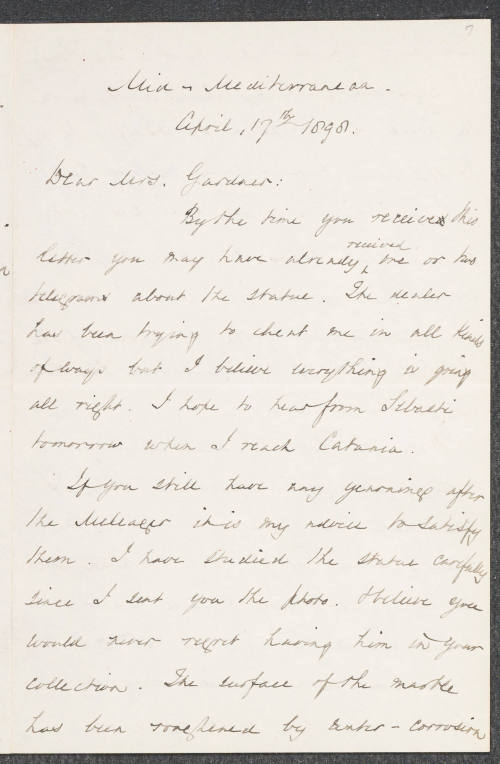 7
Mid-Mediterranean.
April, 17th 1898.
Dear Mrs. Gardner:
By the time you receive this
letter you may have already received one or two
telegrams about the statue. The dealer
has been trying to cheat me in all kinds
of ways but I believe everything is going
all right. I hope to hear from Sebasti
tomorrow when I reach Catania.
If you still have any yearnings after
the Meleager it is my advice to satisfy
them. I have studied the statue carefully
since I sent you the photo. I believe you
would never regret having him in your
collection. The surface of the marble
has been roughened by water-corrosion